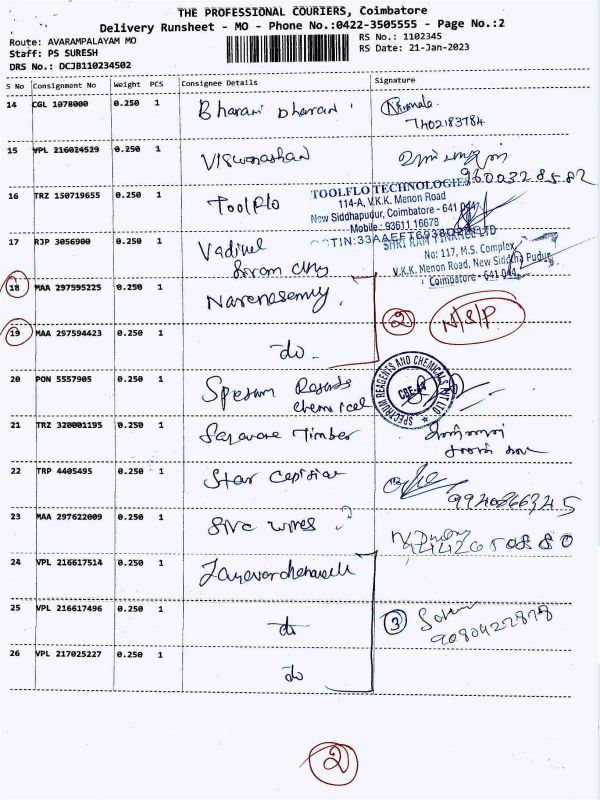 THE PROFESSIONAL COURIERS, Coimbatore
Delivery Runsheet - MO - Phone No.:0422-3505555 - Page No.:2
Route: AVARAMPALAYAM MO
RS No.: 1102345
Staff: PS SURESH
RS Date: 21-Jan-2023
DRS No.: DCJB110234502
S No Consignment No Weight PCS Consignee Details Signature
14 CGL 1078000 0.250 1 Bharani Dharani
7402183784
15 VPL 216024529 0.250 1 Viswanathan
9600328582
16 TRZ 150719655 0.250 1 Toolflo
TOOLFLO TECHNOLOGIES
114-A, V.K.K. Menon Road
New Siddhapudur, Coimbatore - 641 044
Mobile: 93611 16678
17 RJP 3056900 0.250 1 Vadivel
SHRI RAM FINANCE LTD
No: 117, M.S. Complex
V.K.K. Menon Road, New Siddha Pudur
Coimbatore - 641 044
18 MAA 297595225 0.250 1
2 N/S/P
19 MAA 297594423 0.250 1 do
20 PON 5557905 0.250 1 chemical
SPECTRUM REAGENTS AND CHEMICALS PVT LTD
21 TRZ 320001195 0.250 1 Timber
22 TRP 4405495 0.250 1 Star
9940866345
23 MAA 297622009 0.250 1 wires
24 VPL 216617514 0.250 1
25 VPL 216617496 0.250 1 do
3
9080422878
26 VPL 217025227 0.250 1 do
2